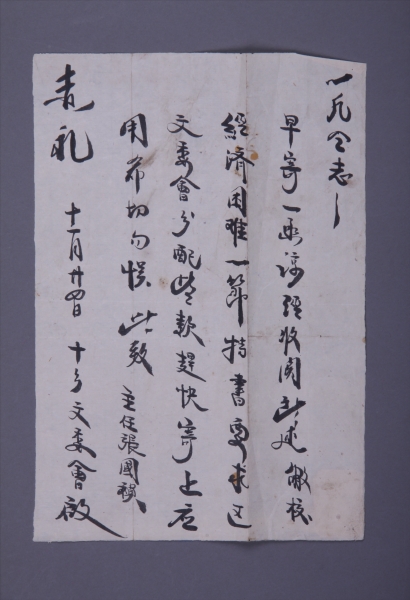 一凡同志：
早寄一函諒經收閱所述敝校
經濟困难一節特書要求区
文委會分配些款趕快寄上应
用希切勿悮 此致
主任張國禎
青礼
十一月廿四日 十分文委會啟